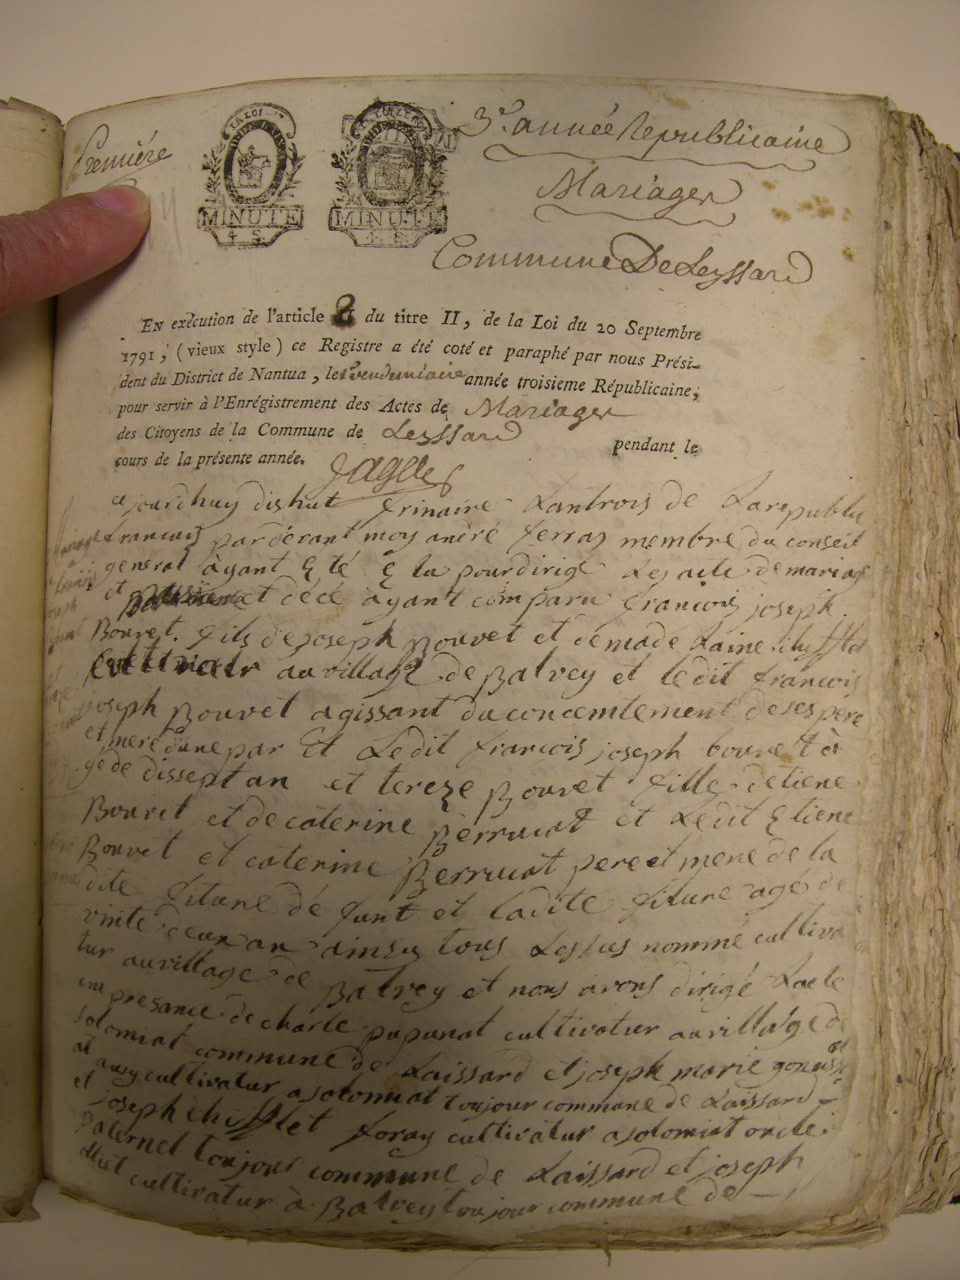 Première
LA LOI
MINUTE
4 S.
MINUTE
4 S.
3e. année Republicaine
Mariages
Commune De Leyssard
EN exécution de l'article 2 du titre II, de la Loi du 20 Septembre
1791, (vieux style) ce Registre a été coté et paraphé par nous Prési-
dent du District de Nantua, le vendemiaire année troisieme Républicaine,
pour servir à l'Enrégistrement des Actes de Mariages
des Citoyens de la Commune de Leyssard pendant le
cours de la présente année.
ce jourdhuy dishuit frinaire Lantrois de Larepublic
francais pardérant moy andré ferraz membre du conseil
general ayant été élu pourdirigé Les acte de mariag
et décé ayant comparu francois joseph
Bouvet fils de joseph Bouvet et de made Laine chifflet
au village de Balvey et ledit francois
joseph Bouvet agissant du concemtement de ses pere
et mere dune par Et Ledit francois joseph bouvet a
gé de disseptan et tereze Bouvet fille detiene
Bouvet et de caterine Berruiat et Ledit Etiene
Bouvet et caterine Berruiat pere et mere de la
dite future dé funt et ladite future agé de
vinte deux an ainsy tous Lessus nommé cultiva
tur au village de Balvey et nous avons dirigé Lacte
ene presance de charle pupunat cultivatur au village de
solomiat commune de Laissard et joseph marie
ausy cultivatur a solomiat toujour commune de Laissard
et joseph chifflet foray cultivatur a solomiat oncle
Paternel toujour commune de Laissard et joseph
cultivatur à Balvey toujour commune de